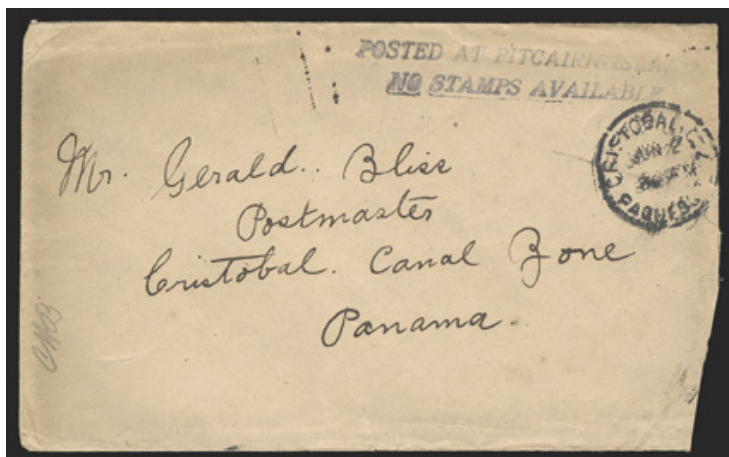 POSTED AT PITCAIRN ISLAND
NO STAMPS AVAILABLE
CRISTOBAL, C.Z.
JUN 2
PAQUEBOT
Mr. Gerald. Bliss
Postmaster
Cristobal. Canal Zone
Panama.